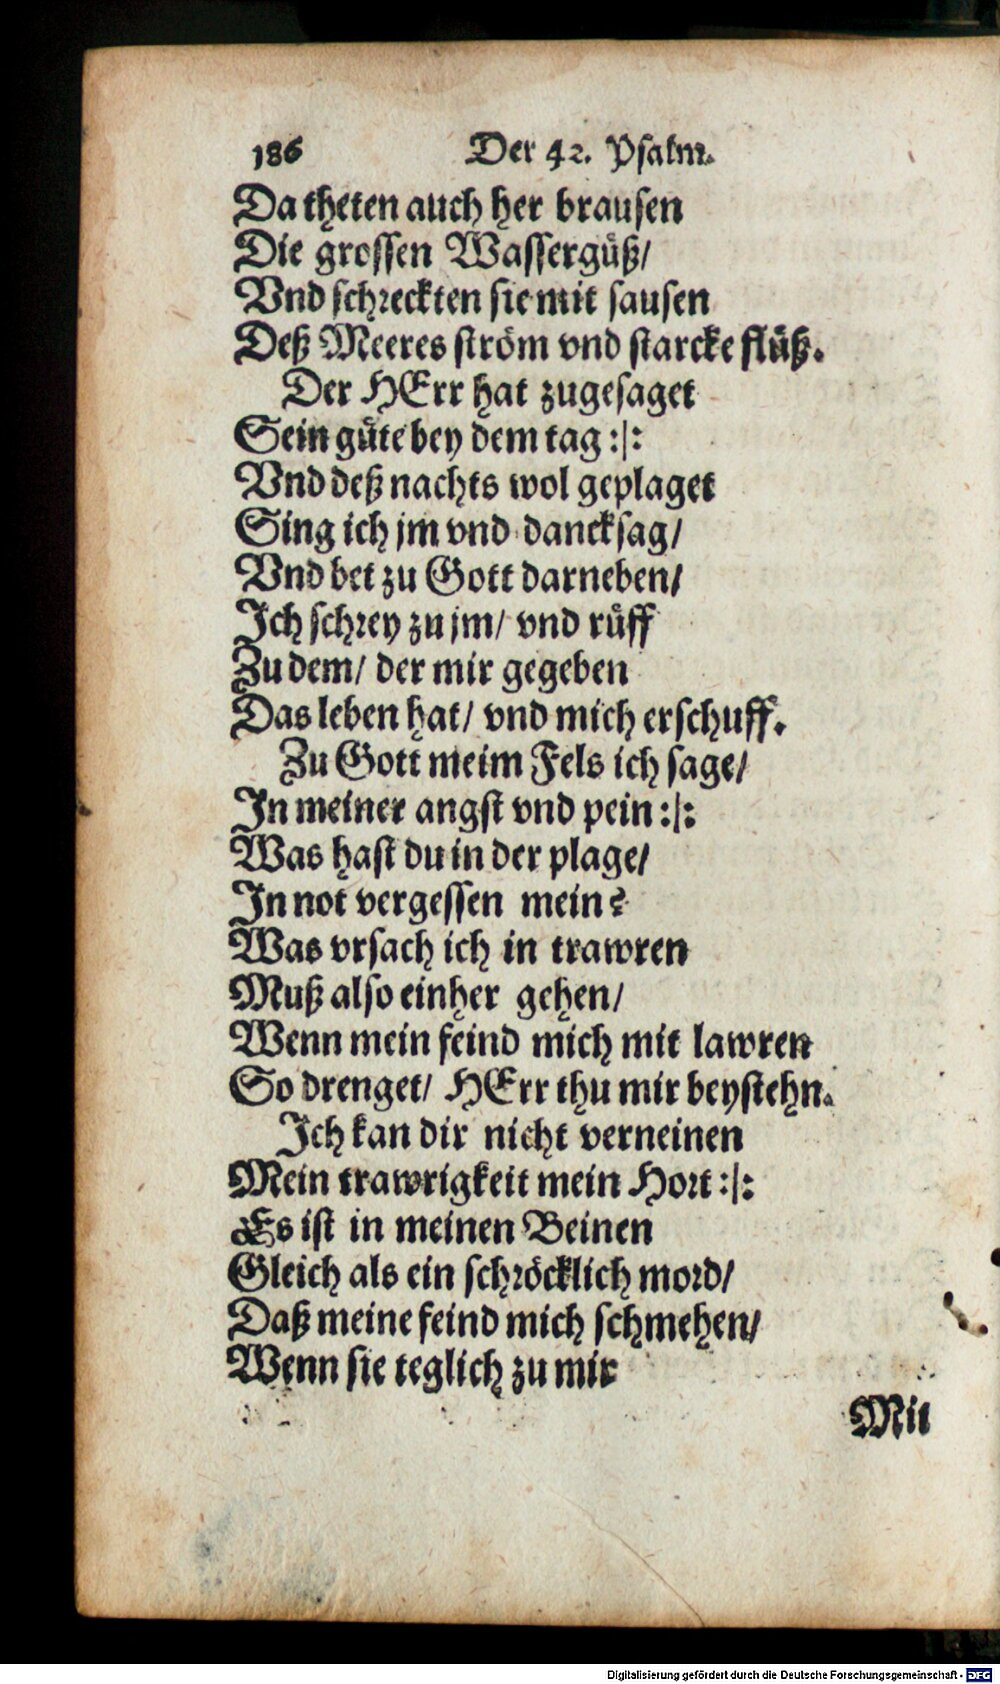 186 Der 42. Psalm.
Da theten auch her brausen
Die grossen Wassergüß/
Vnd schreckten sie mit sausen
Deß Meeres ström vnd starcke flüß.
Der HErr hat zugesaget
Sein güte bey dem tag :|:
Vnd deß nachts wol geplaget
Sing ich jm vnd dancksag/
Vnd bet zu Gott darneben/
Ich schrey zu jm/ vnd rüff
Zu dem/ der mir gegeben
Das leben hat/ vnd mich erschuff.
Zu Gott meim Fels ich sage/
In meiner angst vnd pein :|:
Was hast du in der plage/
In not vergessen mein?
Was vrsach ich in trawren
Muß also einher gehen/
Wenn mein feind mich mit lawren
So drenget/ HErr thu mir beystehn.
Ich kan dir nicht verneinen
Mein trawrigkeit mein Hort :|:
Es ist in meinen Beinen
Gleich als ein schröcklich mord/
Daß meine feind mich schmehen/
Wenn sie teglich zu mir
Mit
Digitalisierung gefördert durch die Deutsche Forschungsgemeinschaft - DFG